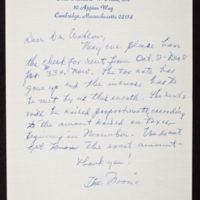 10 Appian Way
Cambridge, Massachusetts 02138
Dear Dr.
May we please have
the check for rent from Oct. 9 - Nov 8
for $330. now. The tax rate has
gone up and the increase has to
be met by us this month. The rent
will be raised proportionately, according
to the amount raised on taxes
beginning in November. We don't
yet know the exact amount-
Thank you!
The